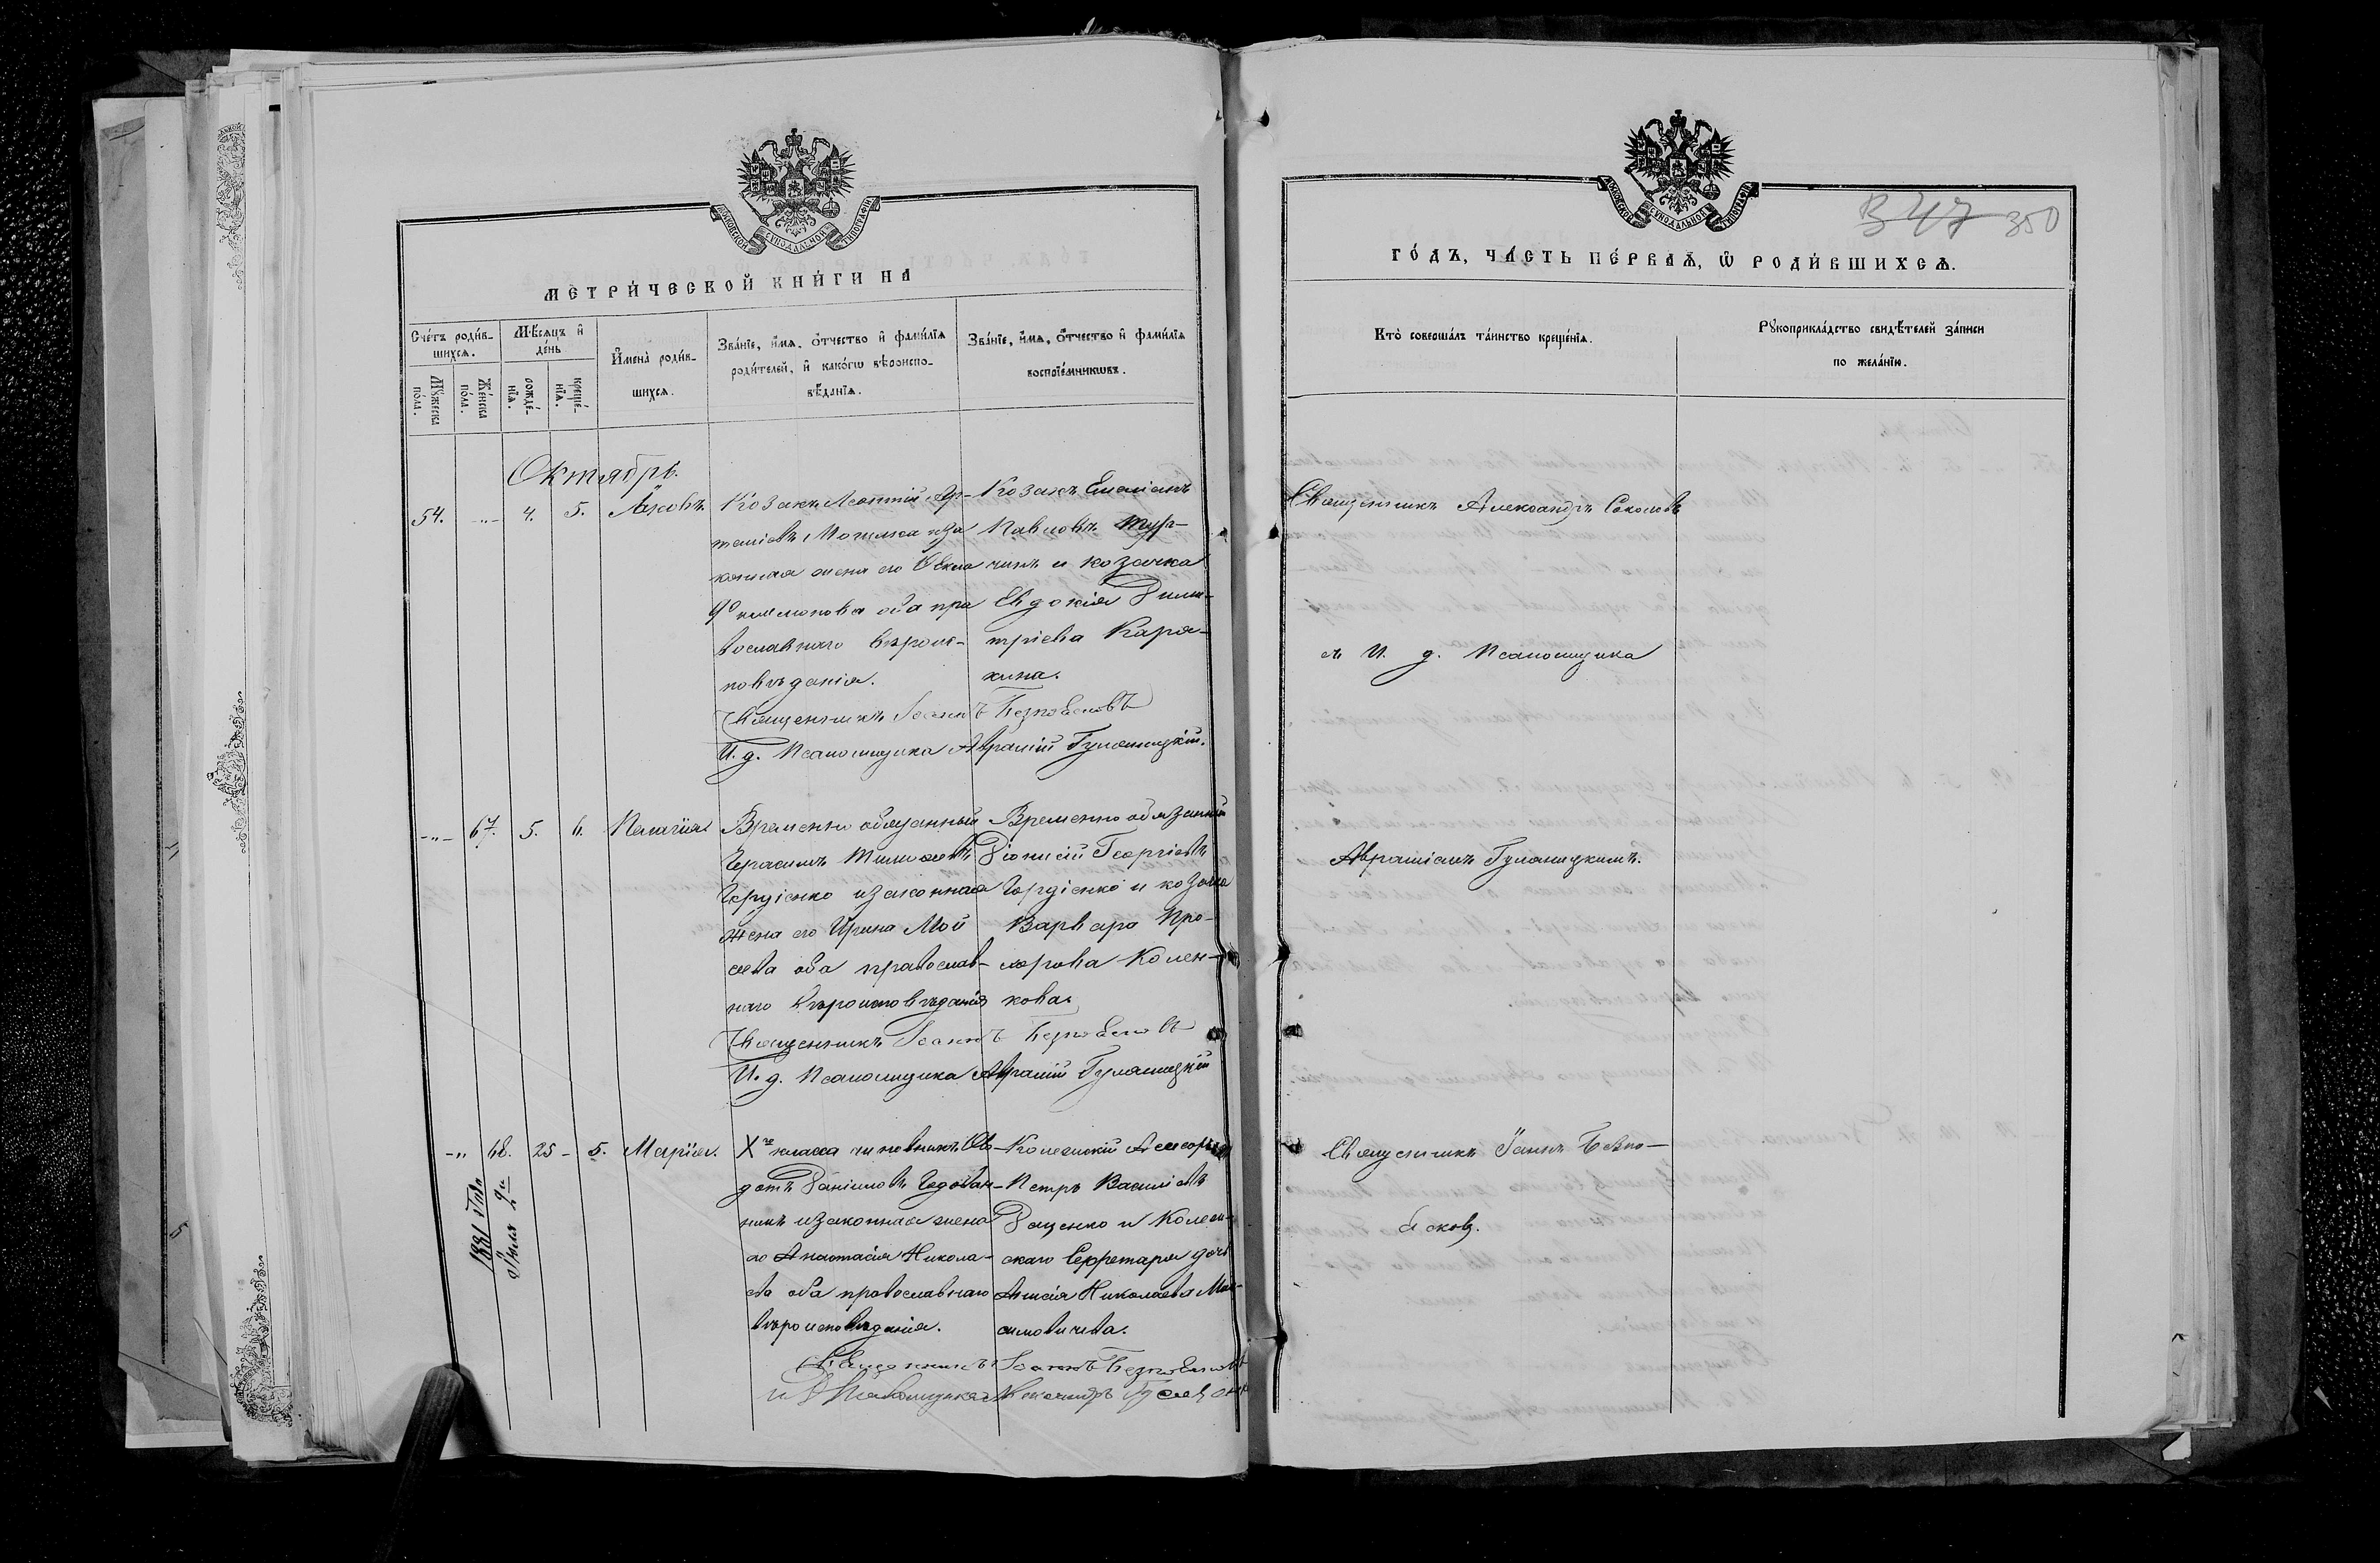 МОСКОВСКОЙ СѴНОДАЛЬНОЙ ТИПОГРАФІИ
МЕТРИ́ЧЕСКОЙ КНИ́ГИ НА
Сче́тъ роди́в-
шихсѧ.
Мꙋ́жеска
по́ла.
Же́нска
по́ла.
Мѣ́сѧцъ и҆
де́нь
рожде́-
нїѧ.
креще́-
нїѧ.
И҆мена̀ роди́в-
шихсѧ.
Зва́нїе, и҆́мѧ, ѻ҆́тчество и҆ фами́лїѧ
роди́телей, и҆ како́гѡ вѣроиспо-
вѣ́данїѧ.
Зва́нїе, и҆́мѧ, ѻ҆́тчество и҆ фами́лїѧ
воспрїе́мникѡвъ.
Октябрь.
54. -"- 4. 5. Яковъ.
Козакъ Леонтій Ар-
теміевъ Могилка и за
конная жена его Ѳекла
Филимонова оба пра
вославнаго вѣроис-
повѣданія.
Козакъ Емеліанъ
Павловъ
чинъ и козачка
Евдокія Дими-
тріева Каря-
кина.
Священникъ Іоаннъ Безпояскова
И. д. Псаломщика Аврамій Гуляницкій.
-"- 67. 5. 6. Пелагія
Временно обязанный
Герасимъ
Гордіенко и законная
жена его Ирина Мой
сеева оба православ-
наго вѣроисповѣданія
Временно обязанный
Діонисій Георгіевъ
Гордіенко и козачка
Варвара Про-
хорова Колен-
кова.
Священникъ Іоаннъ
И. д. Псаломщика Аврамій Гуляницкій
-" 68. 25 - 5. Марія.
1881 Года
Х го класса чиновникъ Ѳео-
дотъ Даніиловъ Годован-
никъ и законная жена
его Анастасія Никола-
ева оба православнаго
вѣроисповѣданія.
Колежскій Ассесоръ
Петръ Василіевъ
Даценко и Колеж-
скаго Секретаря дочь
Анисія Николаева Мак-
симовичева.
Священникъ Іоаннъ
МОСКОВСКОЙ СѴНОДАЛЬНОЙ ТИПОГРАФІИ
347 350
ГО́ДЪ, ЧА́СТЬ ПЕ́РВАѦ, Ѡ҆ РОДИ́ВШИХСѦ.
Кто̀ соверша́лъ та́инство креще́нїѧ.
Рꙋкоприкла́дство свидѣ́телей за́писи
по жела́нїю.
Священникъ Александръ Соколовъ
съ И. д. Псаломщика
Авраміемъ Гуляницкимъ.
Священникъ Іоаннъ Безпо-
ясковъ.